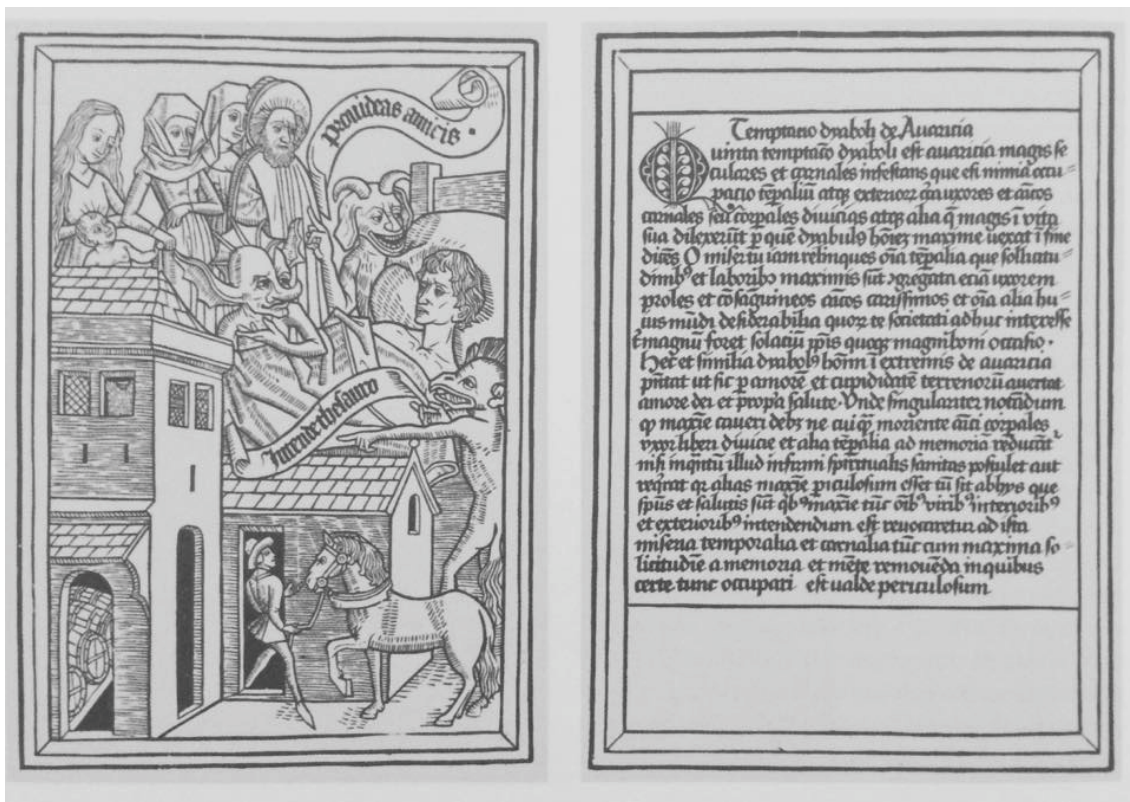 prouideas amicis.
Intende thesauro
Temptatio dyaboli de Auaricia
Quinta temptaco dyaboli est auaricia magis se
culares et carnales infestans que est nimia occu
pacio tẽpaliũ atqz exteriorz uxores et amicos
carnales seu corpales diuicias atqz alia q̃ magis ĩ vita
sua dilexerũt p quẽ dyabulus hoiez maxime uexat ĩ fine
dicẽs O miser tu iam relinques oĩa tẽpalia que sollicitu
dinibꝰ et laboribꝰ maximis sũt ꝯgregata eciã uxorem
proles et cõsaguineos amicos carissimos et oĩa alia hu
ius mũdi desiderabilia quorz te societati adhuc interesse
magnũ foret solaciũ ipis quoqz magni boni occasio.
Hec et similia dyabolꝰ hoĩm ĩ extremis de auaricia
pñtat ut sic p amorẽ et cupiditatẽ terrenorũ auertat
amore dei et propria salute. Vnde singulariter notãdum
qꝫ maxĩe caueri debz ne cui qꝫ moriente amici corpales
uxor liberi diuicie et alia tẽpalia ad memoriã reducãtr
nisi inqntũ illud infirmi spiritualis sanitas postulet aut
reqrat qr alias maxĩe piculosum esset cũ sic ab hijs que
spũs et salutis sũt qbꝰ maxĩe tũc oĩbꝰ viribꝰ interioribꝰ
et exterioribꝰ intendendum est reuocaretur ad ista
miseria temporalia et carnalia tũc cum maxima so
licitudĩe a memoria et mẽte remouẽda in quibus
certe tunc occupari est ualde periculosum